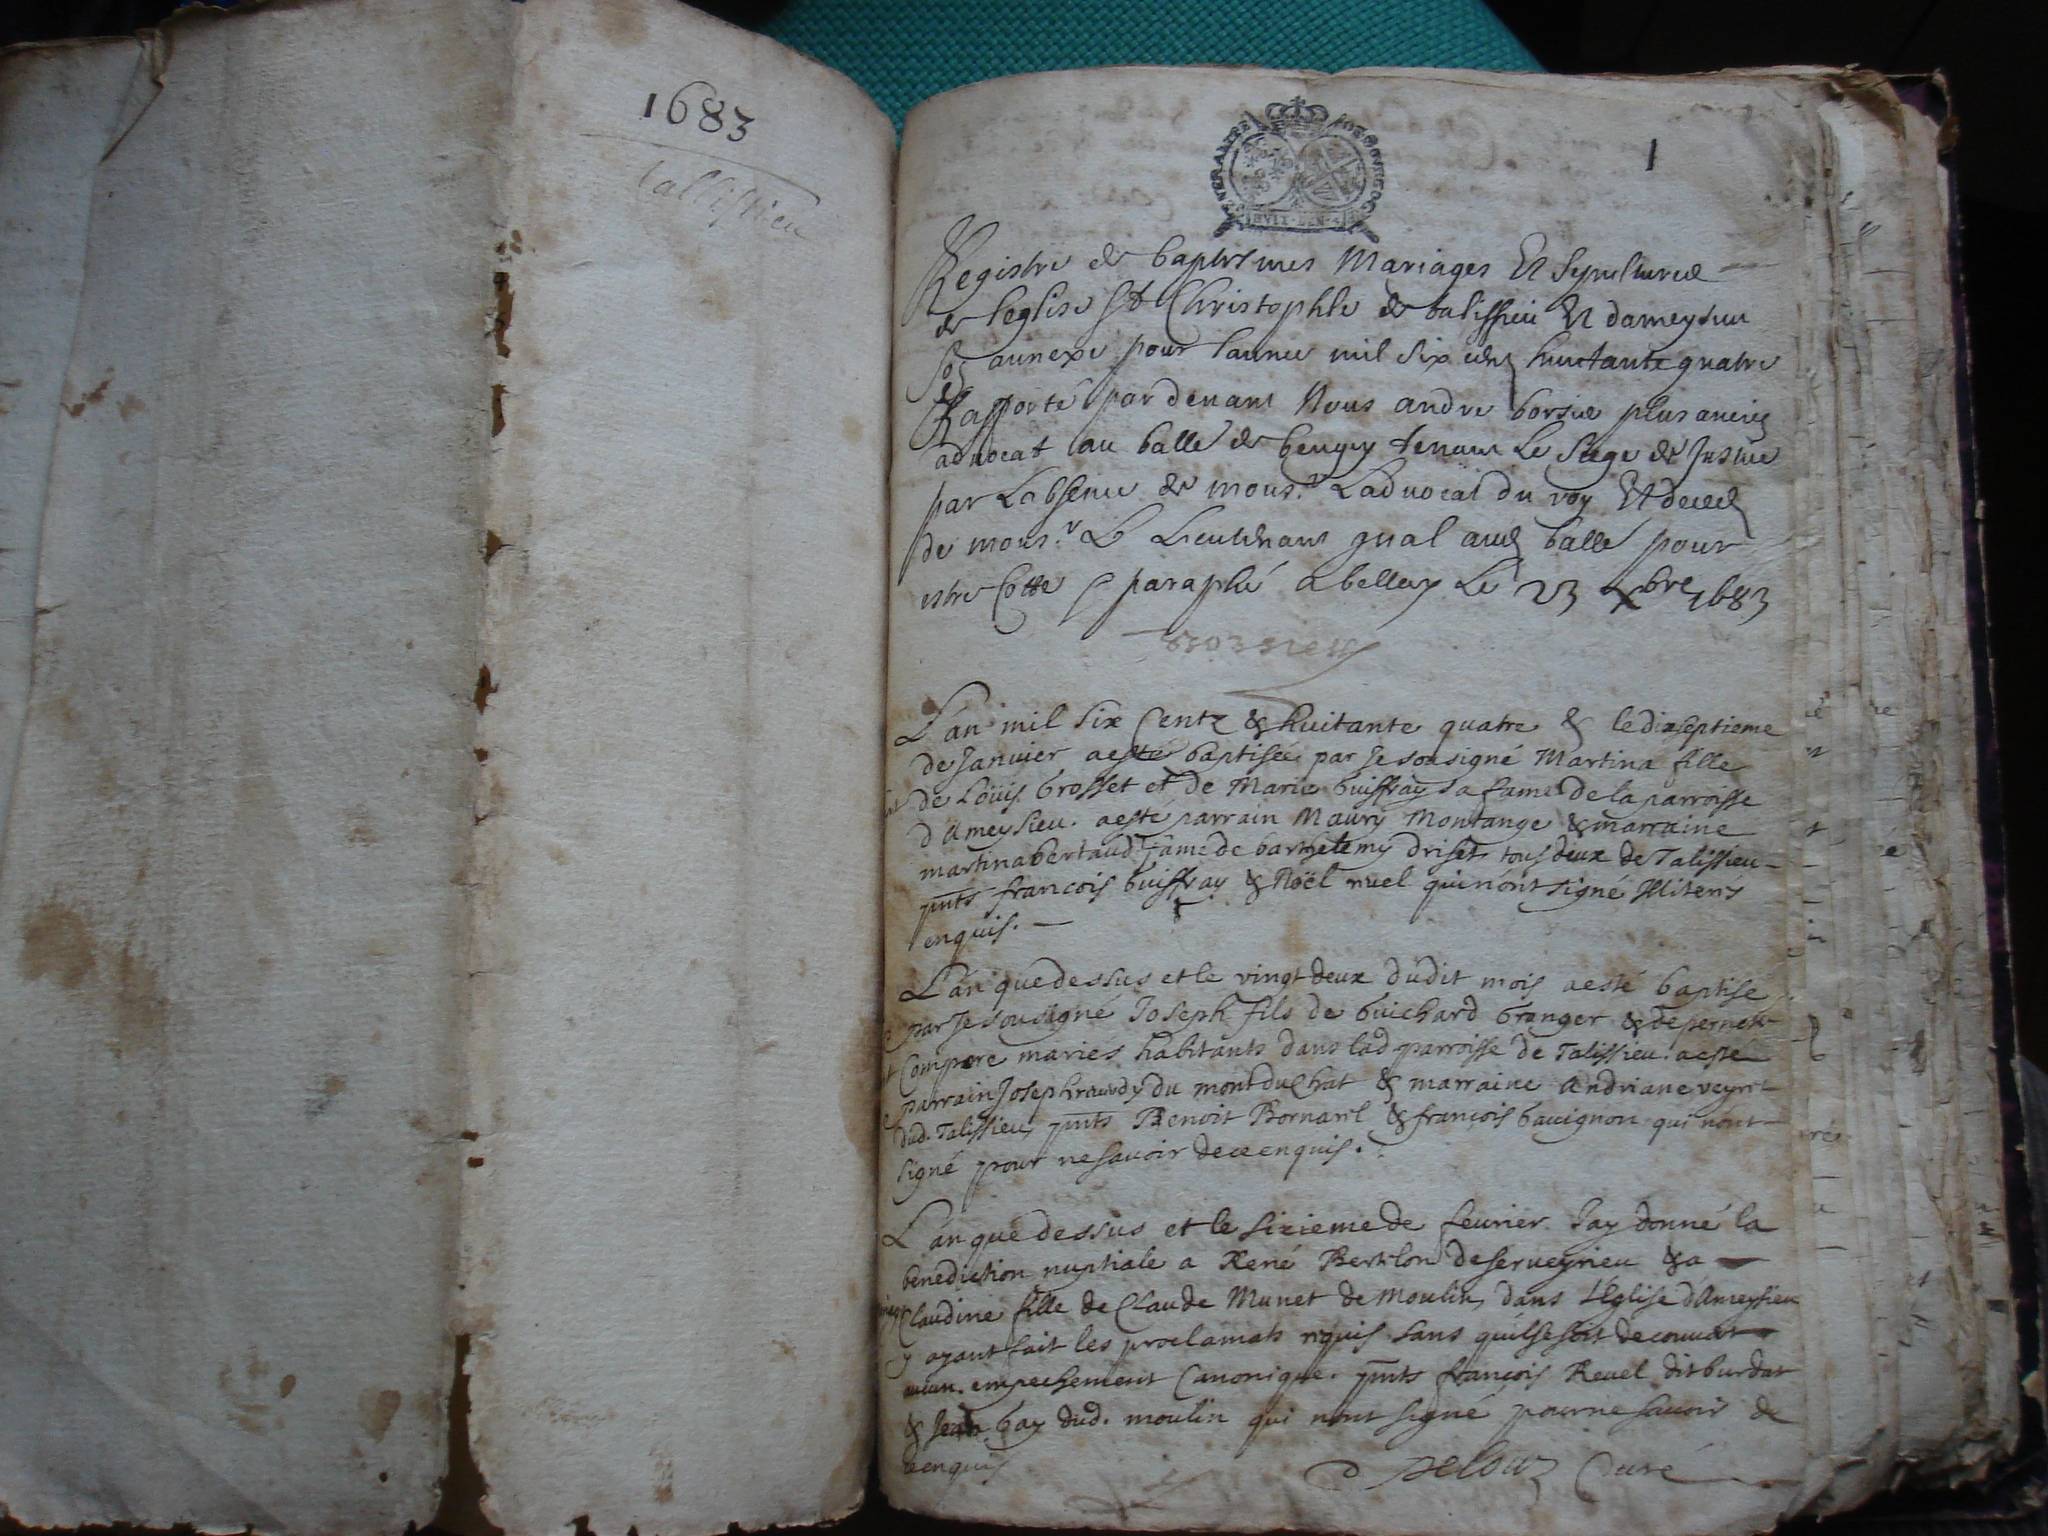 1683
Tallissieu
1
GENERALITE DE BOURGOG
HVIT DEN
Registre de baptesmes Mariages Et Sepultures
de leglise St Christophle de talissieu Et dameysieu
son annexe pour lannee mil six cens huictante quatre
Rapporté pardevant Nous andre borsie plus ancien
advocat au balle de beugey tenant Le Siege de Justice
par Labsence de mons.r Ladvocat du roy Et deced
de mons.r Le Lieutenant gnal aud balle pour
estre Cotté & paraphé a belley Le 23 Xbre 1683
L'an mil six Centz & huitante quatre & le dixseptieme
de Janvier aesté baptisée par Je sousigné Martina fille
de Loüis Grosset et de Marie buiffray sa fame de la parroisse
d'Ameysieu. aesté parrain Maury Montange & marraine
martina bertaud fame de barthelemy driset tous deux de Talissieu
pnts francois buiffray & Noël ruel qui n'ont signé Illiterés
enquis.
L'an que dessus et le vingt deux dudit mois aesté baptise
par Je sousigné Joseph fils de Guichard Granger & de pernette
Compere mariés habitants dans lad parroisse de Talissieu. aesté
parrain Joseph ravdy du mont du Chat & marraine Andriane veyrt
dud. Talissieu, pnts Benoit Bornard & françois Gavignon qui nont
signé pour ne savoir de ce enquis.
L'an que dessus et le sixieme de fevrier Jay donné la
benediction nuptiale a René Berthlon de serveyrieu & a
Claudine fille de Claude Munet de Moulin, dans L'Eglise d'Ameysieu
y ayant fait les proclamats rquis sans quil se soit decouvert
aucun. empechement Canonique. pnts françois Revel dit burdat
& Jean Gay dud. moulin qui nont signé pour ne savoir de
ce enquis
Curé